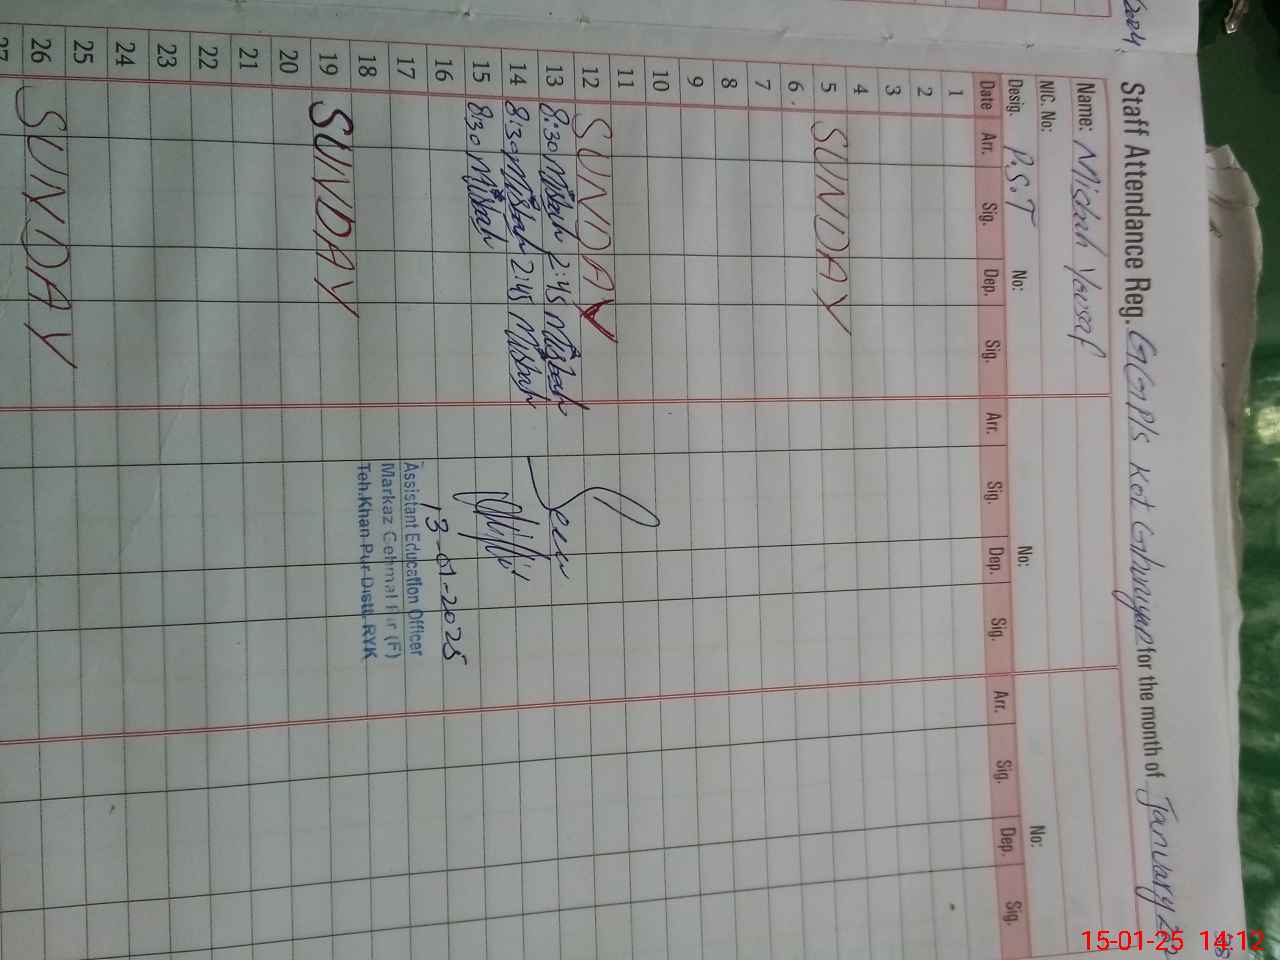 Staff Attendance Reg. GGP/s Kot Ghunyar for the month of January
Name: Misbah Yousaf
NIC. No:
Desig. P.S.T No: No: No:
Date Arr. Sig. Dep. Sig. Arr. Sig. Dep. Sig. Arr. Sig. Dep. Sig.
1
2
3
4
5 SUNDAY
6
7
8
9
10
11
12 SUNDAY
13 8:30 Misbah 2:45 Misbah Seen
14 8:30 Misbah 2:45 Misbah
15 8:30 Misbah
16 13-01-2025
17 Assistant Education Officer
Markaz Gehmal Pur (F)
18 Teh. Khan Pur Distt. RYK
19 SUNDAY
20
21
22
23
24
25
26 SUNDAY
27
2024
15-01-25 14:12